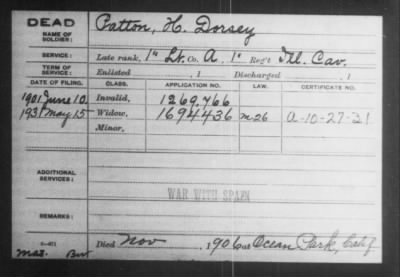 DEAD
NAME OF SOLDIER: Patton, H. Dorsey
SERVICE: Late rank, 1" Lt. Co. A, 1" Reg't Ill. Cav.
TERM OF SERVICE: Enlisted , 1 Discharged , 1
DATE OF FILING. CLASS. APPLICATION NO. LAW. CERTIFICATE NO.
1901 June 10 Invalid, 1269,766
1931 May 15 Widow, 1694436 M-26 A-10-27-31
Minor,
ADDITIONAL SERVICES:
WAR WITH SPAIN
REMARKS:
Died Nov 1906 at Ocean Park, Calif